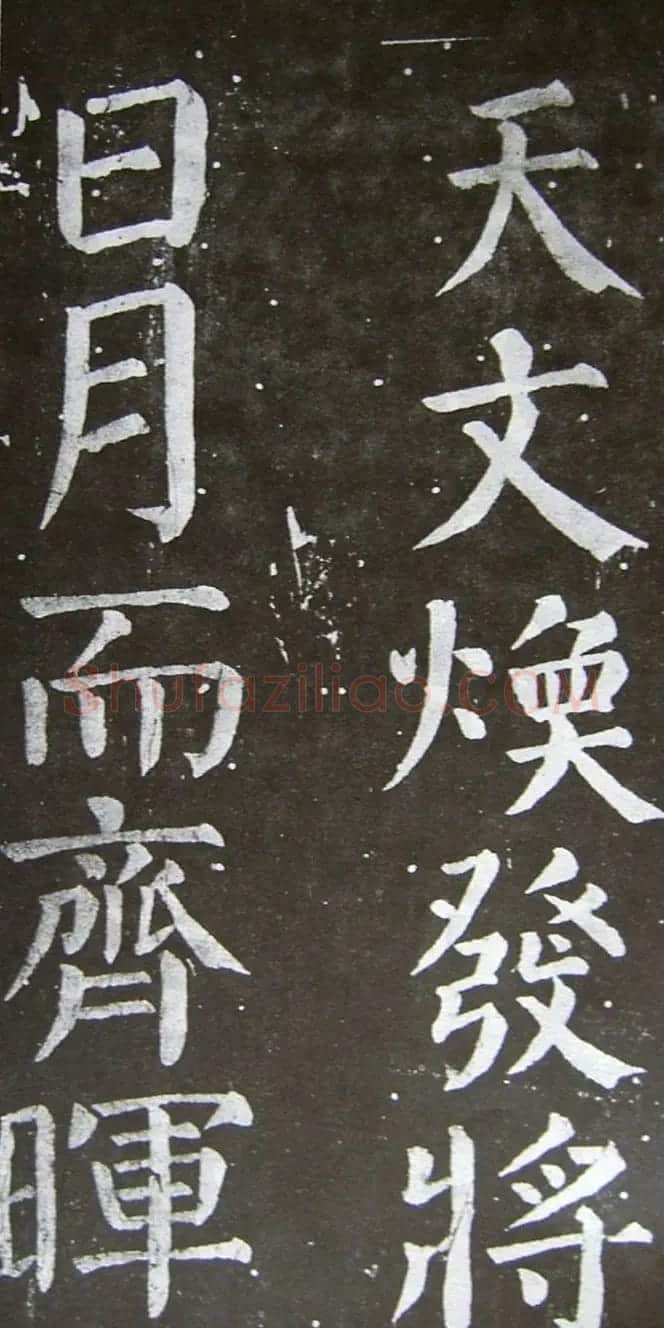 天文煥發將
日月而齊暉
Shufaziliao.com